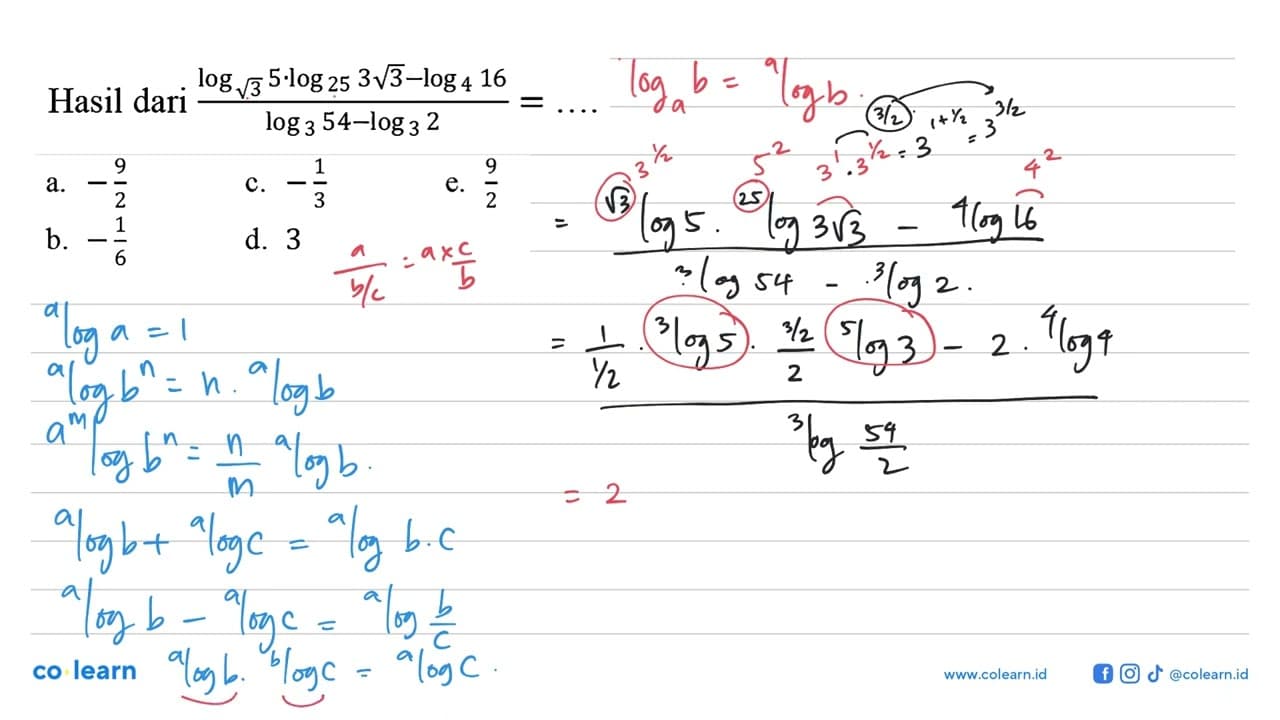 Hasil dari (log_√3 5·log_25 3√3−log_4 16)/(log_3 54−log_3 2) = ....
a. −9/2 c. −1/3 e. 9/2
b. −1/6 d. 3
log_a b = ᵃlog b.
3^(1/2) 5² 3¹·3^(1/2) = 3^(1+1/2) = 3^(3/2) (3/2) 4²
= (^√3 log 5 . ²⁵log 3√3 − ⁴log 16)/(³log 54 − ³log 2.)
a/(b/c) = a × c/b
= (1/(1/2) . ³log 5 . (3/2)/2 ⁵log 3 − 2 . ⁴log 4)/(³log 54/2)
= 2
ᵃlog a = 1
ᵃlog bⁿ = n . ᵃlog b
^(aᵐ)log bⁿ = n/m ᵃlog b.
ᵃlog b + ᵃlog c = ᵃlog b.c
ᵃlog b − ᵃlog c = ᵃlog b/c
ᵃlog b. ᵇlog c = ᵃlog c.
co learn
www.colearn.id
@colearn.id